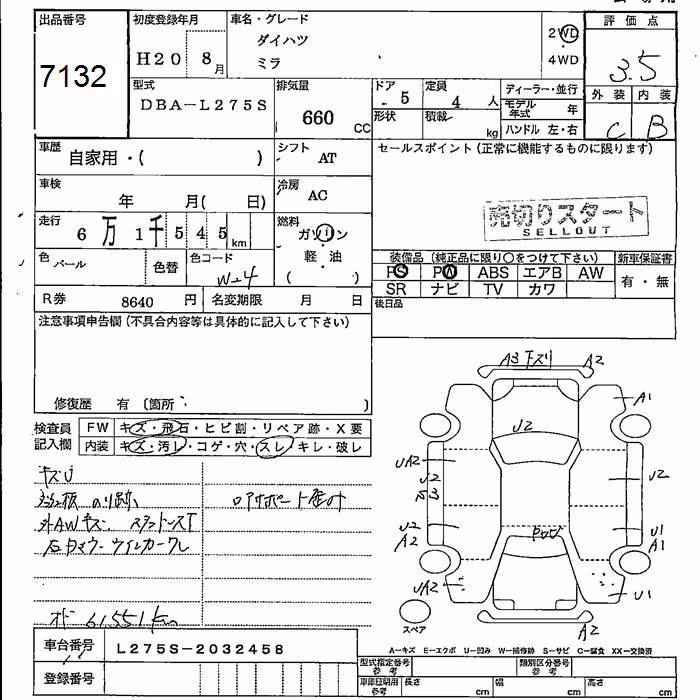 出品番号
7132
初度登録年月
H20 8月
車名・グレード
ダイハツ
ミラ
2WD
4WD
評価点
3.5
外装 内装
C B
型式
DBA-L275S
排気量
660 CC
ドア
5
定員
4 人
形状
積載
kg
ディーラー・並行
モデル年式 年
ハンドル 左・右
車歴
自家用・( )
シフト
AT
セールスポイント (正常に機能するものに限ります)
車検
年 月( 日)
冷房
AC
売切りスタート
SELLOUT
走行
6万1千545km
燃料
ガソリン
軽・油
( )
色
パール
色替
色コード
W24
装備品 (純正品に限り〇をつけて下さい)
PS PW ABS エアB AW
SR ナビ TV カワ
新車保証書
有・無
後日品
R券 8640 円
名変期限 月 日
注意事項申告欄 (不具合内容等は具体的に記入して下さい)
修復歴 有 〔箇所 〕
検査員記入欄
FW キズ・飛石・ヒビ割・リペア跡・X要
内装 キズ・汚し・コゲ・穴・スレ・キレ・破レ
キズU
のり跡
外AWキズ
ウインカー
オド 61551km
A3 下スリ A2
A1
U2
UA2
U2
U2
U2
A2
U1
A1
UA2
U1
A2
スペア
A-キズ E-エクボ U-凹み W-補修跡 S-サビ C-腐食 XX-交換済
車台番号
L275S-2032458
登録番号
型式指定番号 参考
類別区分番号 参考
車庫証明用 参考
長さ cm
幅 cm
高さ cm